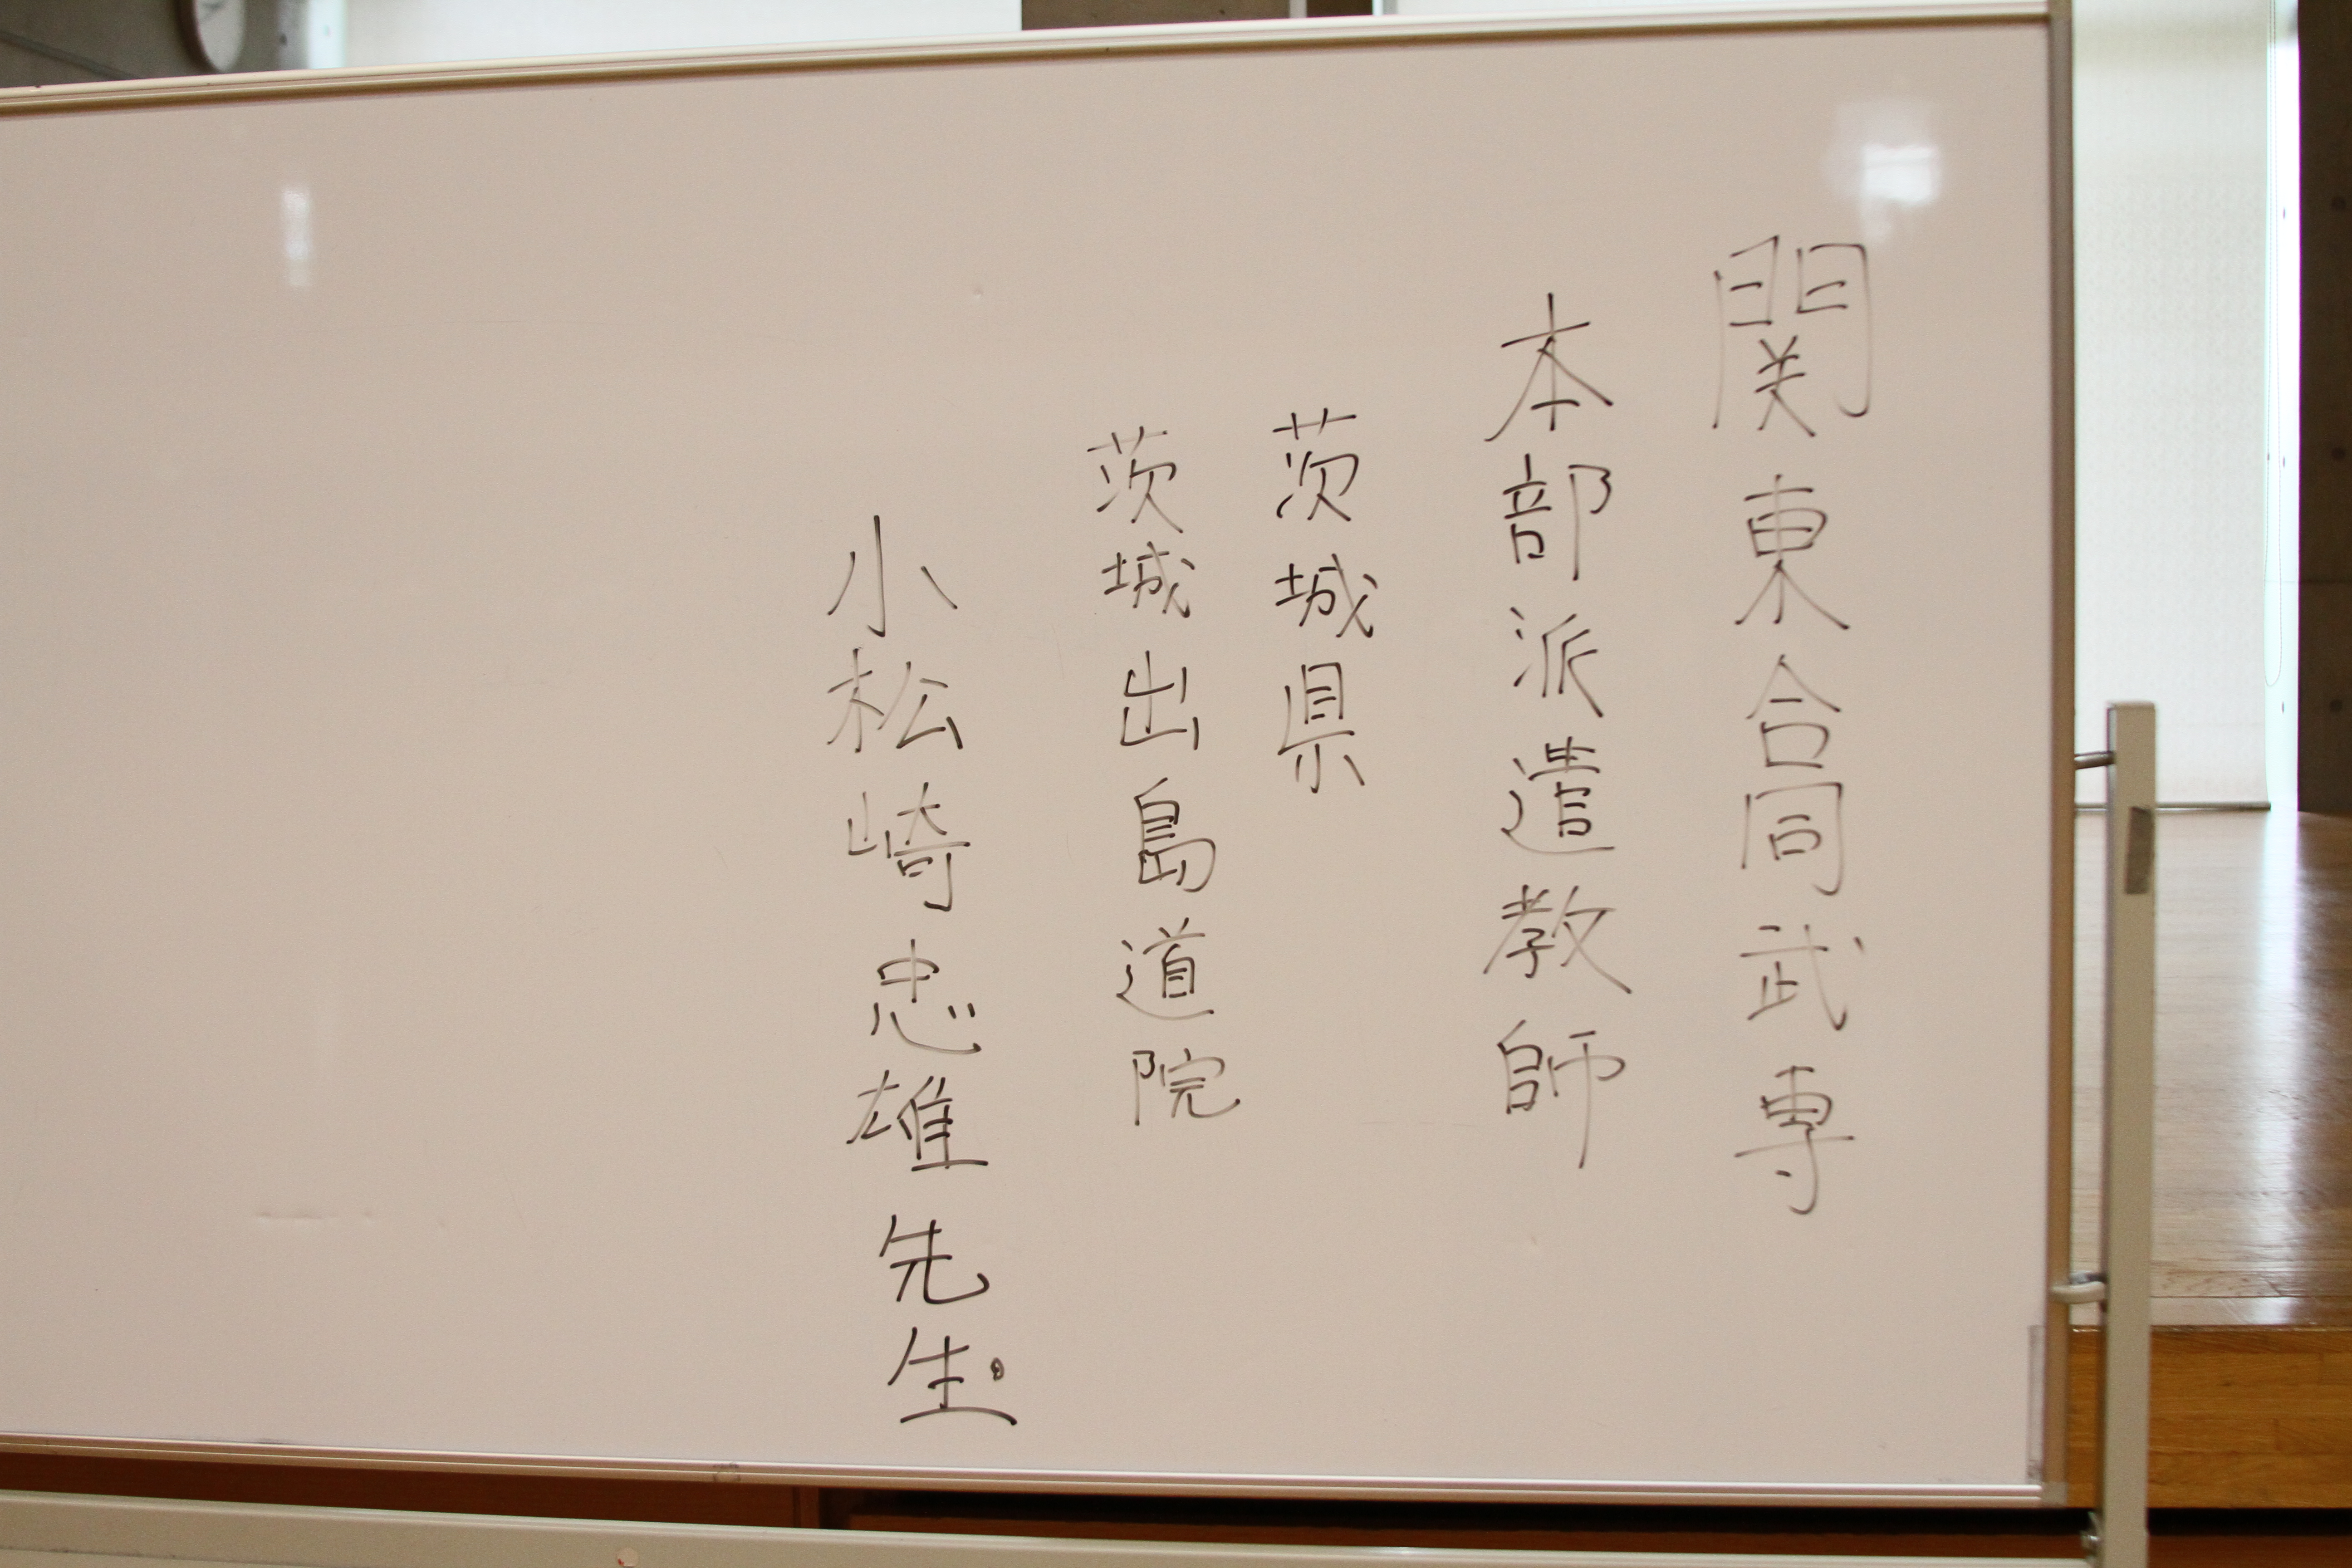 関東合同武専
本部派遣教師
茨城県
茨城出島道院
小松崎忠雄先生。